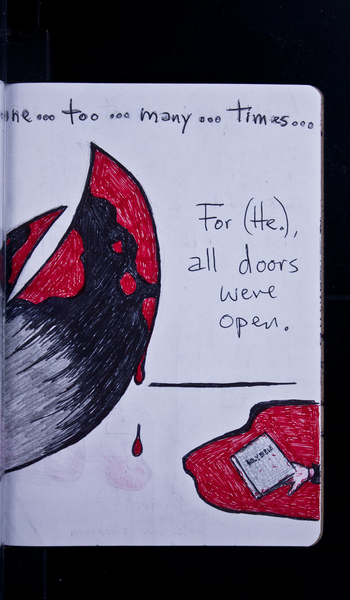 ne... too... many... times...
For (He.),
all doors
were
open.